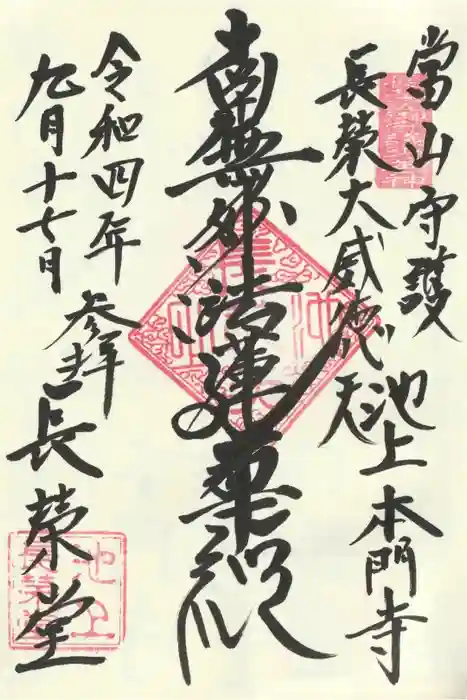 當山守護
長榮大威徳天
池上本門寺
南無妙法蓮華経
令和四年
九月十七日
参拝
長榮堂